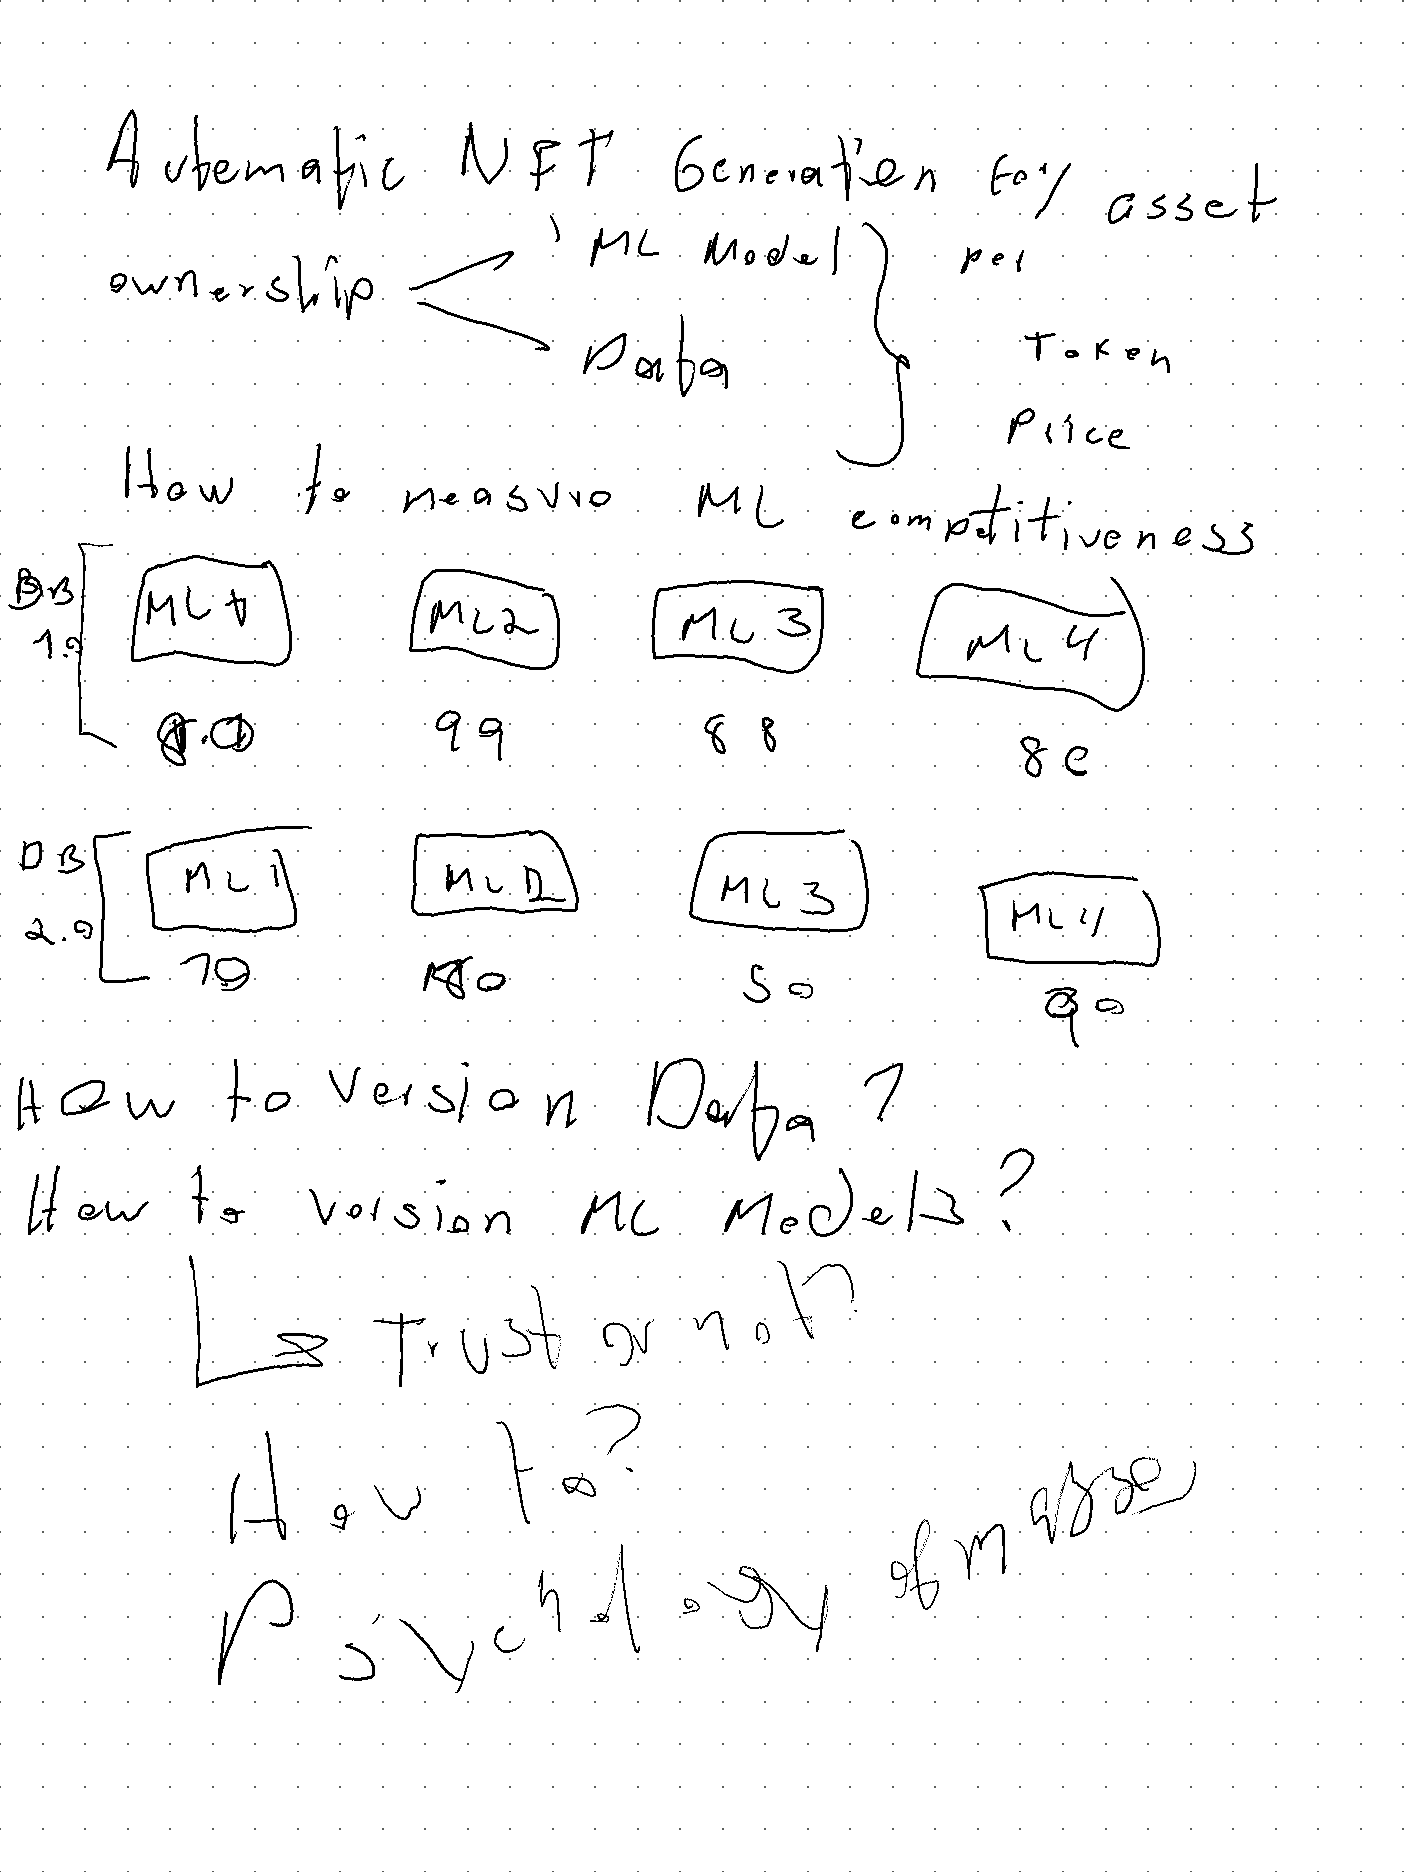 Automatic NFT Generation for asset
ownership ML Model per
Data Token
Price
How to measure ML competitiveness
DB 1.0
ML1 ML2 ML3 ML4
99 88 80
DB 2.0
ML1 ML2 ML3 ML4
70 80 50 90
How to version Data?
How to version ML Models?
Trust or not?
How to?
Psychology of masse